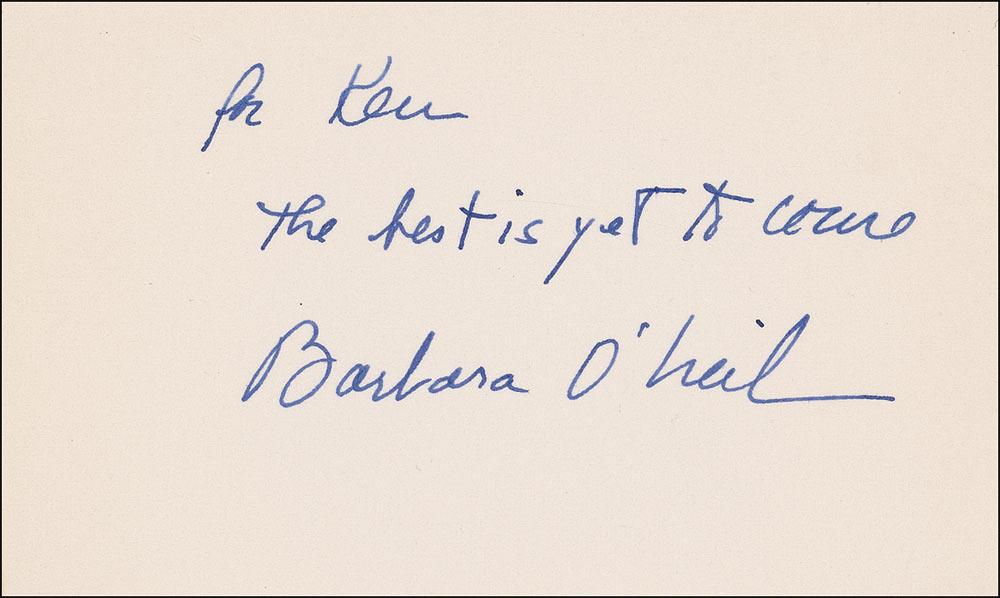 for Ken
The best is yet to come
Barbara O'Neil